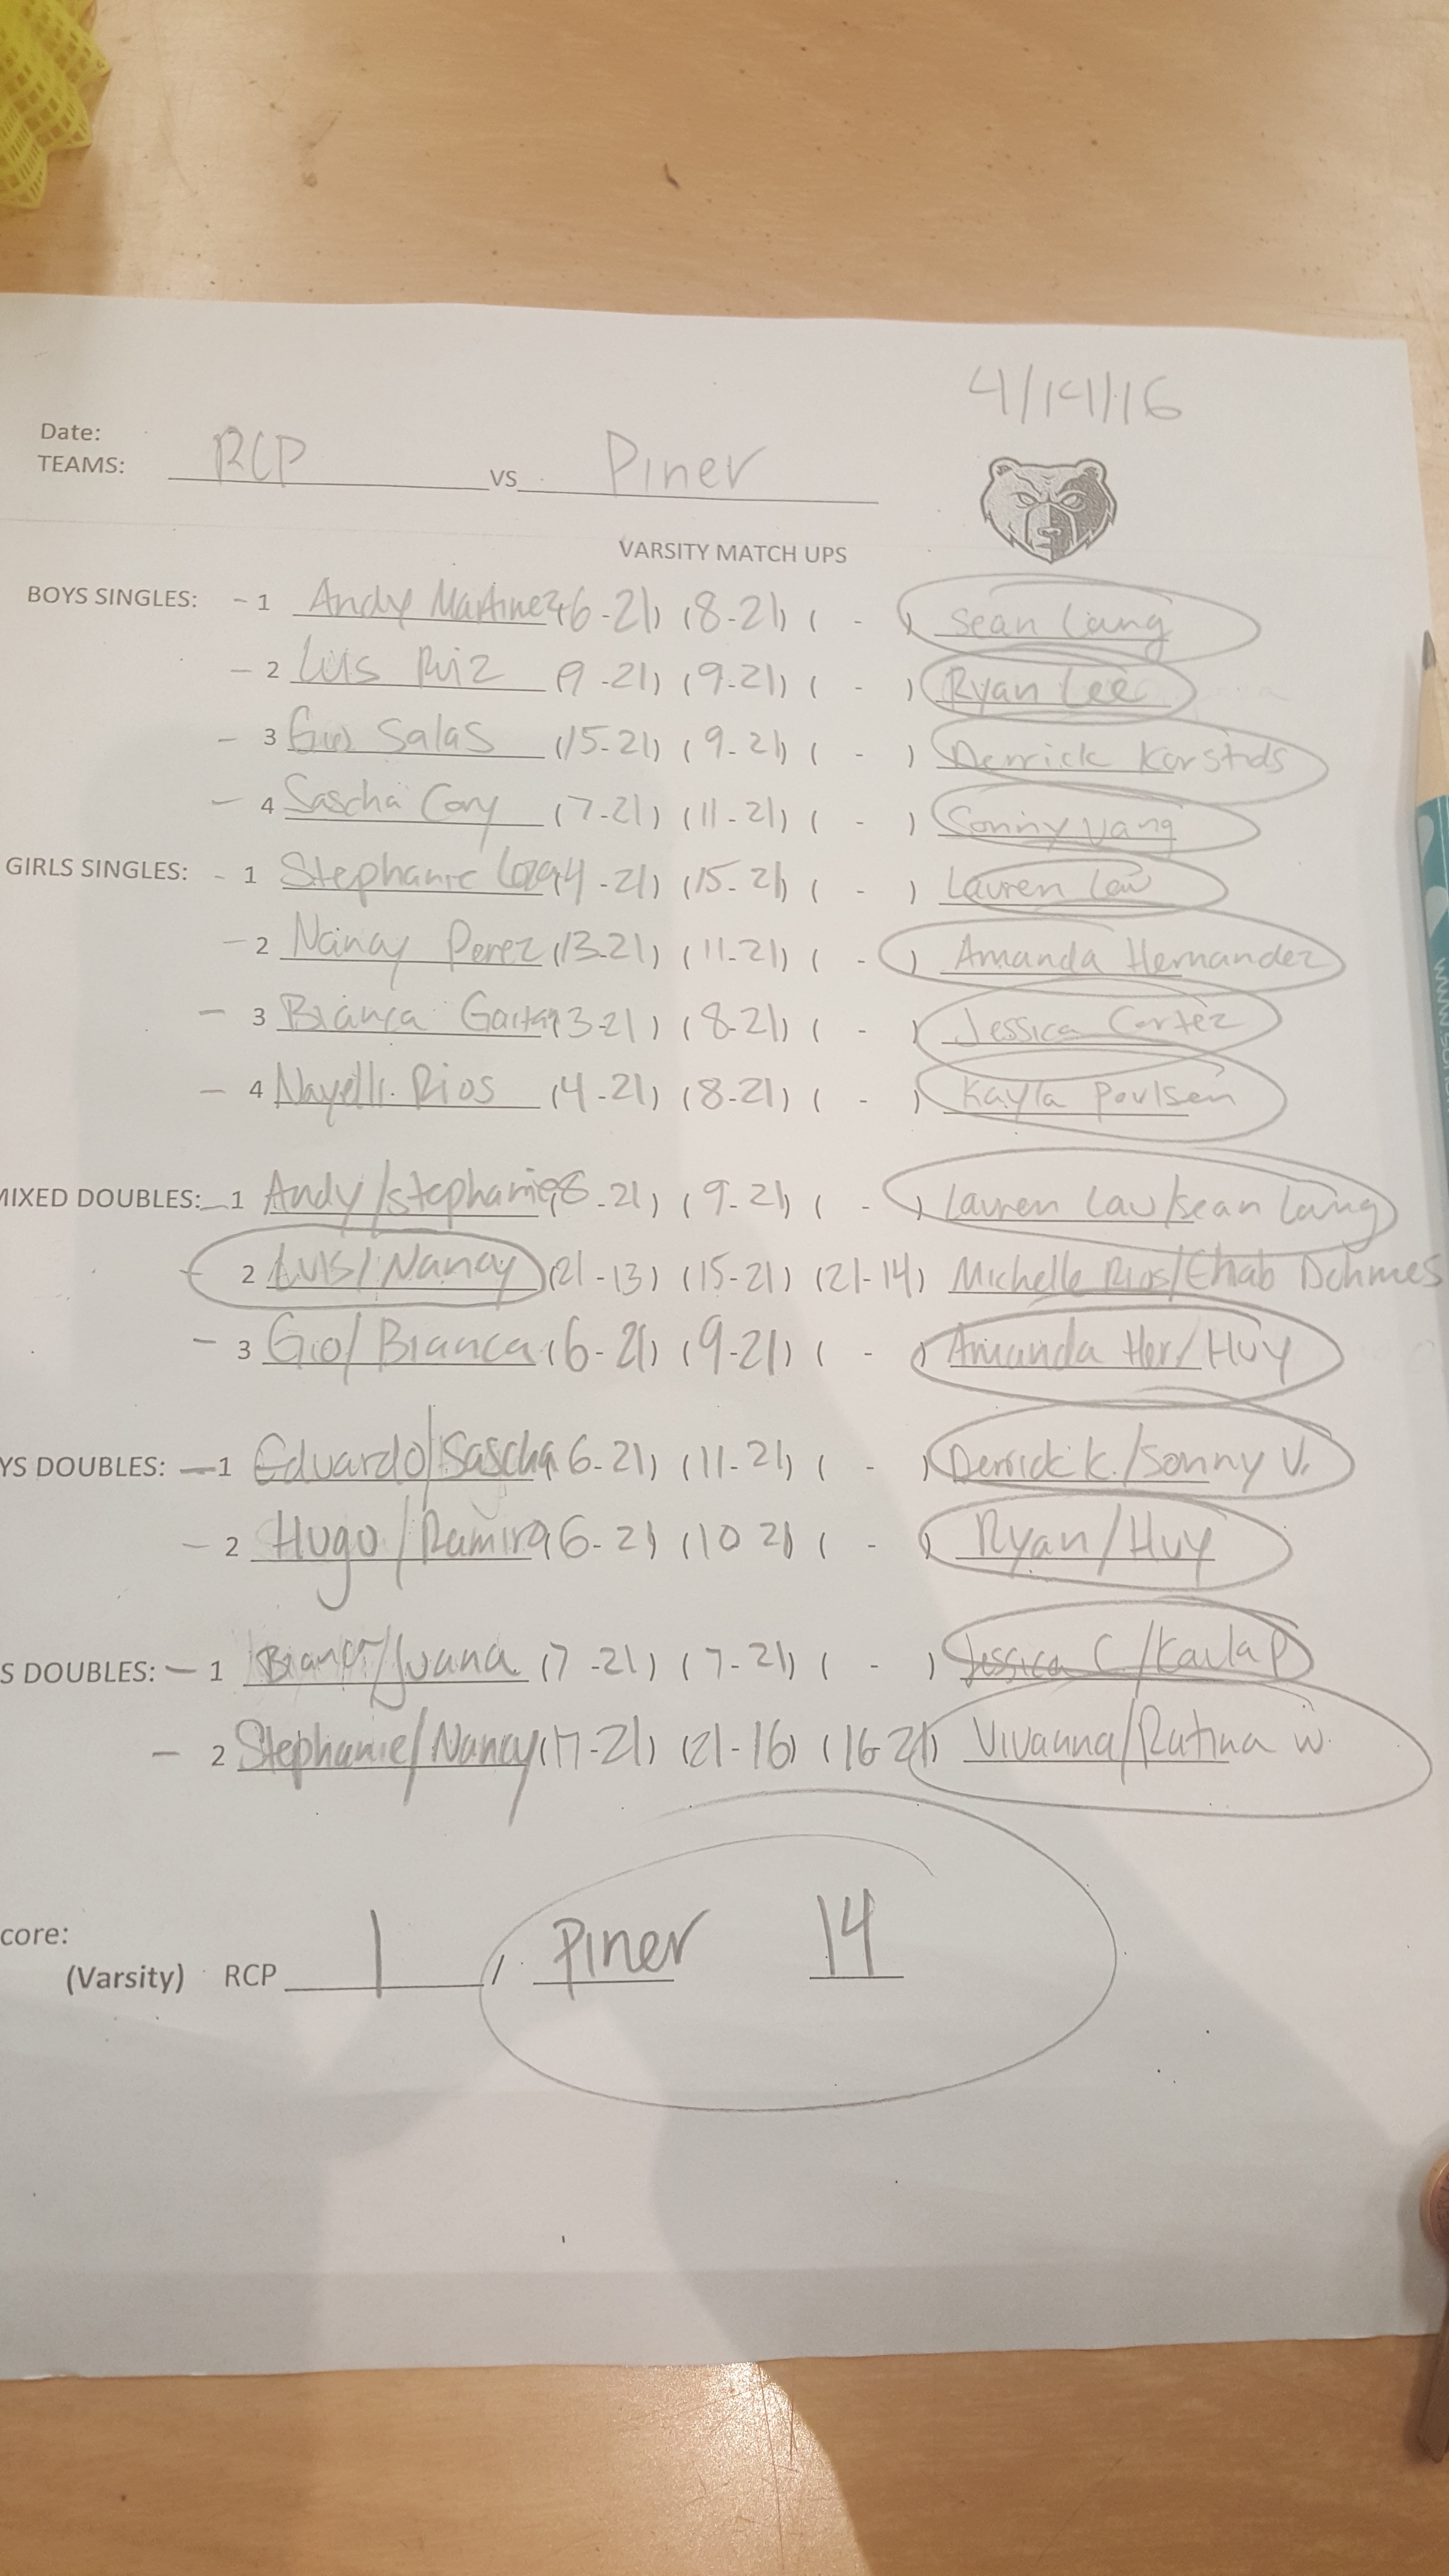 4/14/16
Date:
TEAMS: RCP vs Piner
VARSITY MATCH UPS
BOYS SINGLES: - 1 Andy Martinez (6-21) (8-21) ( - ) Sean Lang
- 2 Luis Ruiz (9-21) (9-21) ( - ) Ryan Lee
- 3 Gio Salas (15-21) (9-21) ( - ) Derrick
- 4 Sascha Cory (7-21) (11-21) ( - ) Sonny Vang
GIRLS SINGLES: - 1 Stephanie (4-21) (15-21) ( - ) Lauren Law
- 2 Nancy Perez (13-21) (11-21) ( - ) Amanda Hernandez
- 3 Bianca Gaitan (3-21) (8-21) ( - ) Jessica Cortez
- 4 Nayelli Rios (4-21) (8-21) ( - ) Kayla Poulsen
MIXED DOUBLES: - 1 Andy/Stephanie (8-21) (9-21) ( - ) Lauren Law/Sean Lang
- 2 Luis/Nancy (21-13) (15-21) (21-14) Michelle Rios/Ehab Dehmes
- 3 Gio/Bianca (6-21) (9-21) ( - ) Amanda Her/Huy
YS DOUBLES: - 1 Eduardo/Sascha (6-21) (11-21) ( - ) Derrick K./Sonny V.
- 2 Hugo/Ramiro (6-21) (10 21) ( - ) Ryan/Huy
S DOUBLES: - 1 Bianca/Juana (7-21) (7-21) ( - ) Jessica C./Kayla P
- 2 Stephanie/Nancy (17-21) (21-16) (16-21) Vivanna/Ratina W.
core:
(Varsity) RCP 1 / Piner 14
www.sc